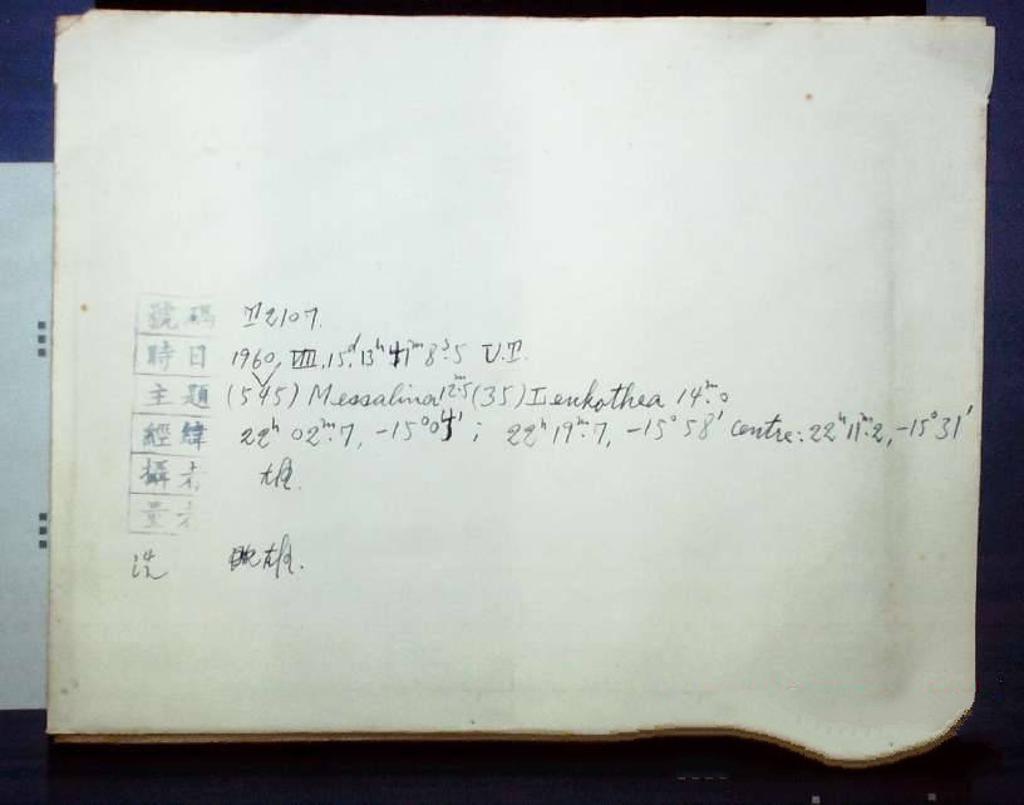 號碼 II2107.
時日 1960, VIII, 15.ᵈ 13ʰ 41ᵐ 8ˢ.5 U.T.
主題 (545) Messalina 12ᵐ.5 (35) Leukothea 14ᵐ.0
經緯 22ʰ 02ᵐ.7, -15°04'; 22ʰ 19ᵐ.7, -15°58' centre: 22ʰ 11ᵐ.2, -15°31'
攝者 雄.
量者
洗 雄.